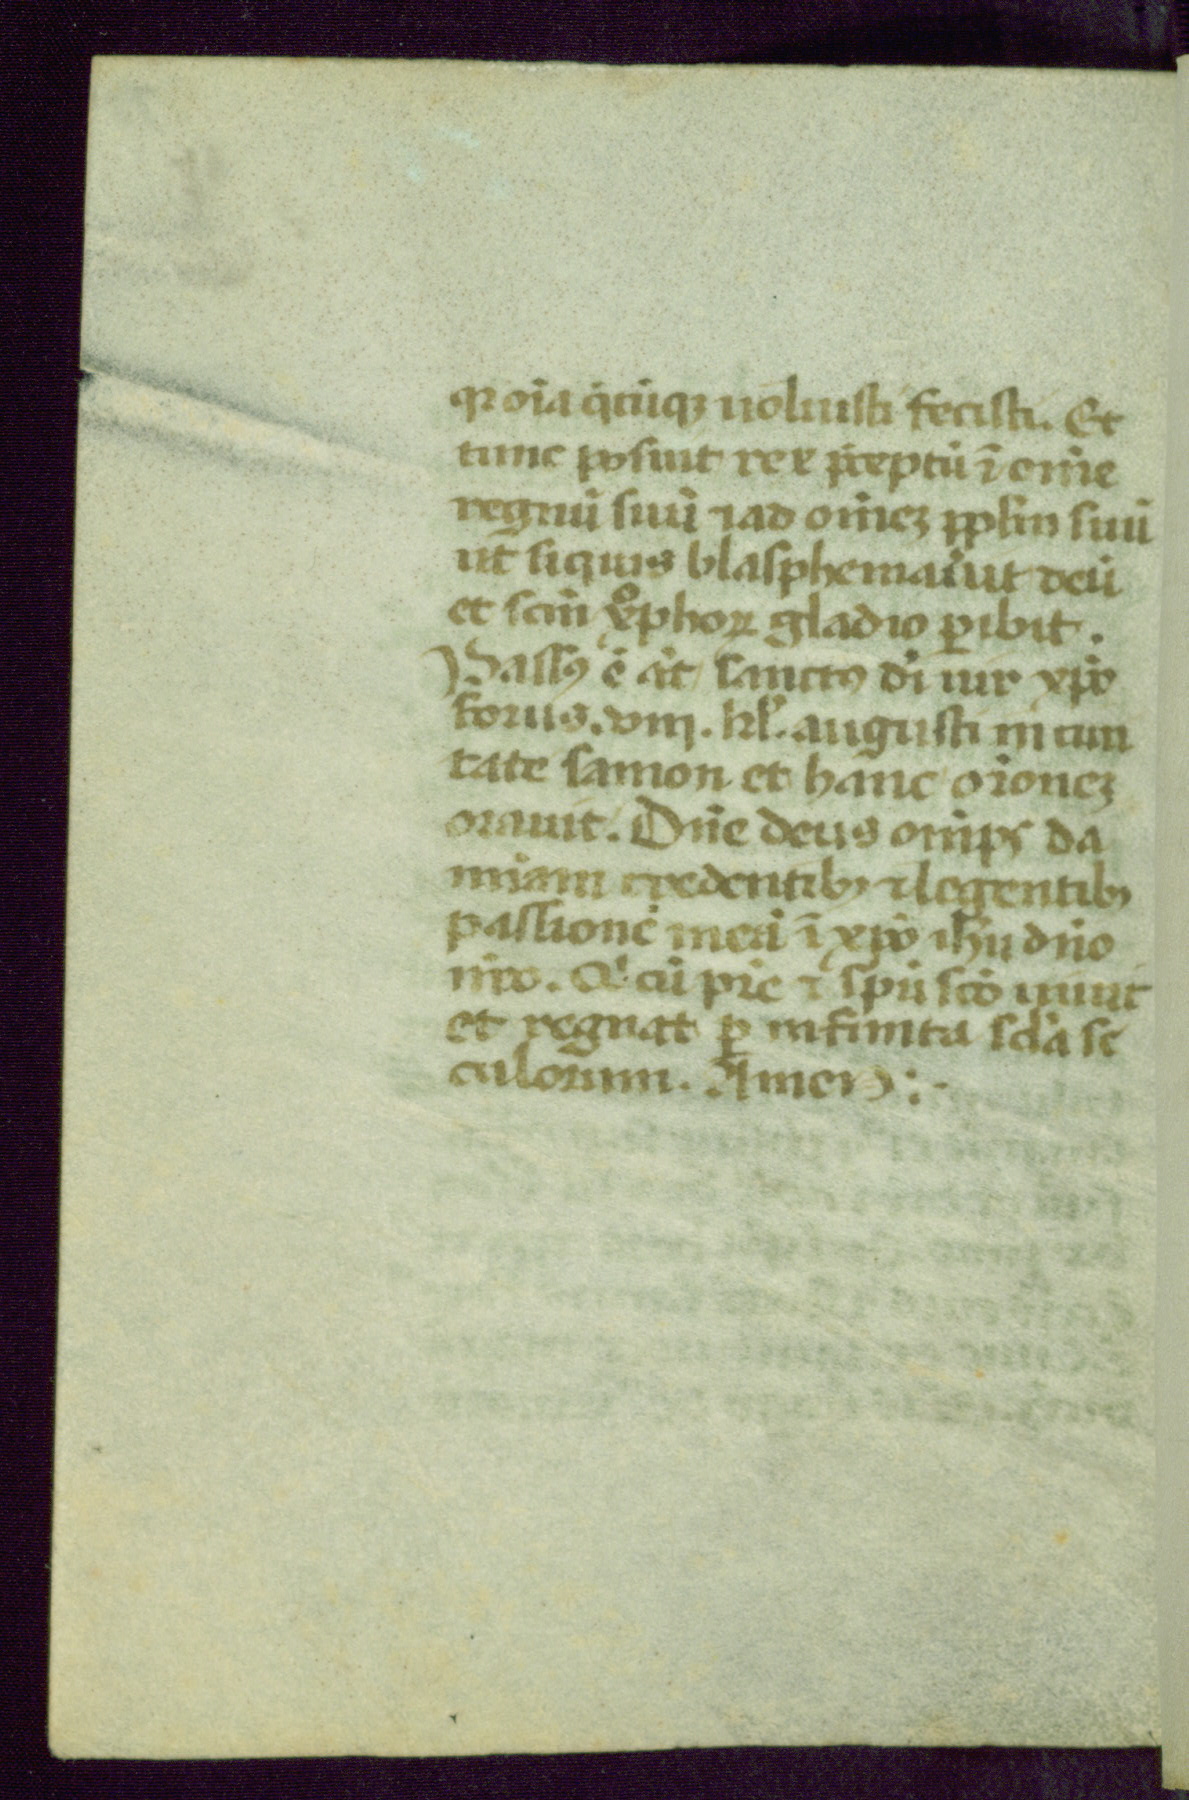 qr oı̄a q̇cūqꝫ uoluisti fecisti. Et
tunc posuit rex p̄ceptū ī om̄e
regnū suū ⁊ ad om̄eꝫ pp̄lm suū
ut siquis blasphemau̍it deū
et scm̄ xp̄ophoꝝ gladio ꝑibit.
Passꝰ ē aūt sanctꝰ dı̄ uir xpō
forus. viij. kl̄. augusti in ciui
tate samon et hanc or̄oneꝫ
orauit. Dn̄e deus omp̄s da
mı̄am credentibꝫ ⁊ legentibꝫ
passionē meā ī xpō ihū dn̄o
nr̄o. Qͥ cū prē ⁊ spū scō uiuit
et regnat ꝑ infinita scl̄a se
culorum. Amen :-